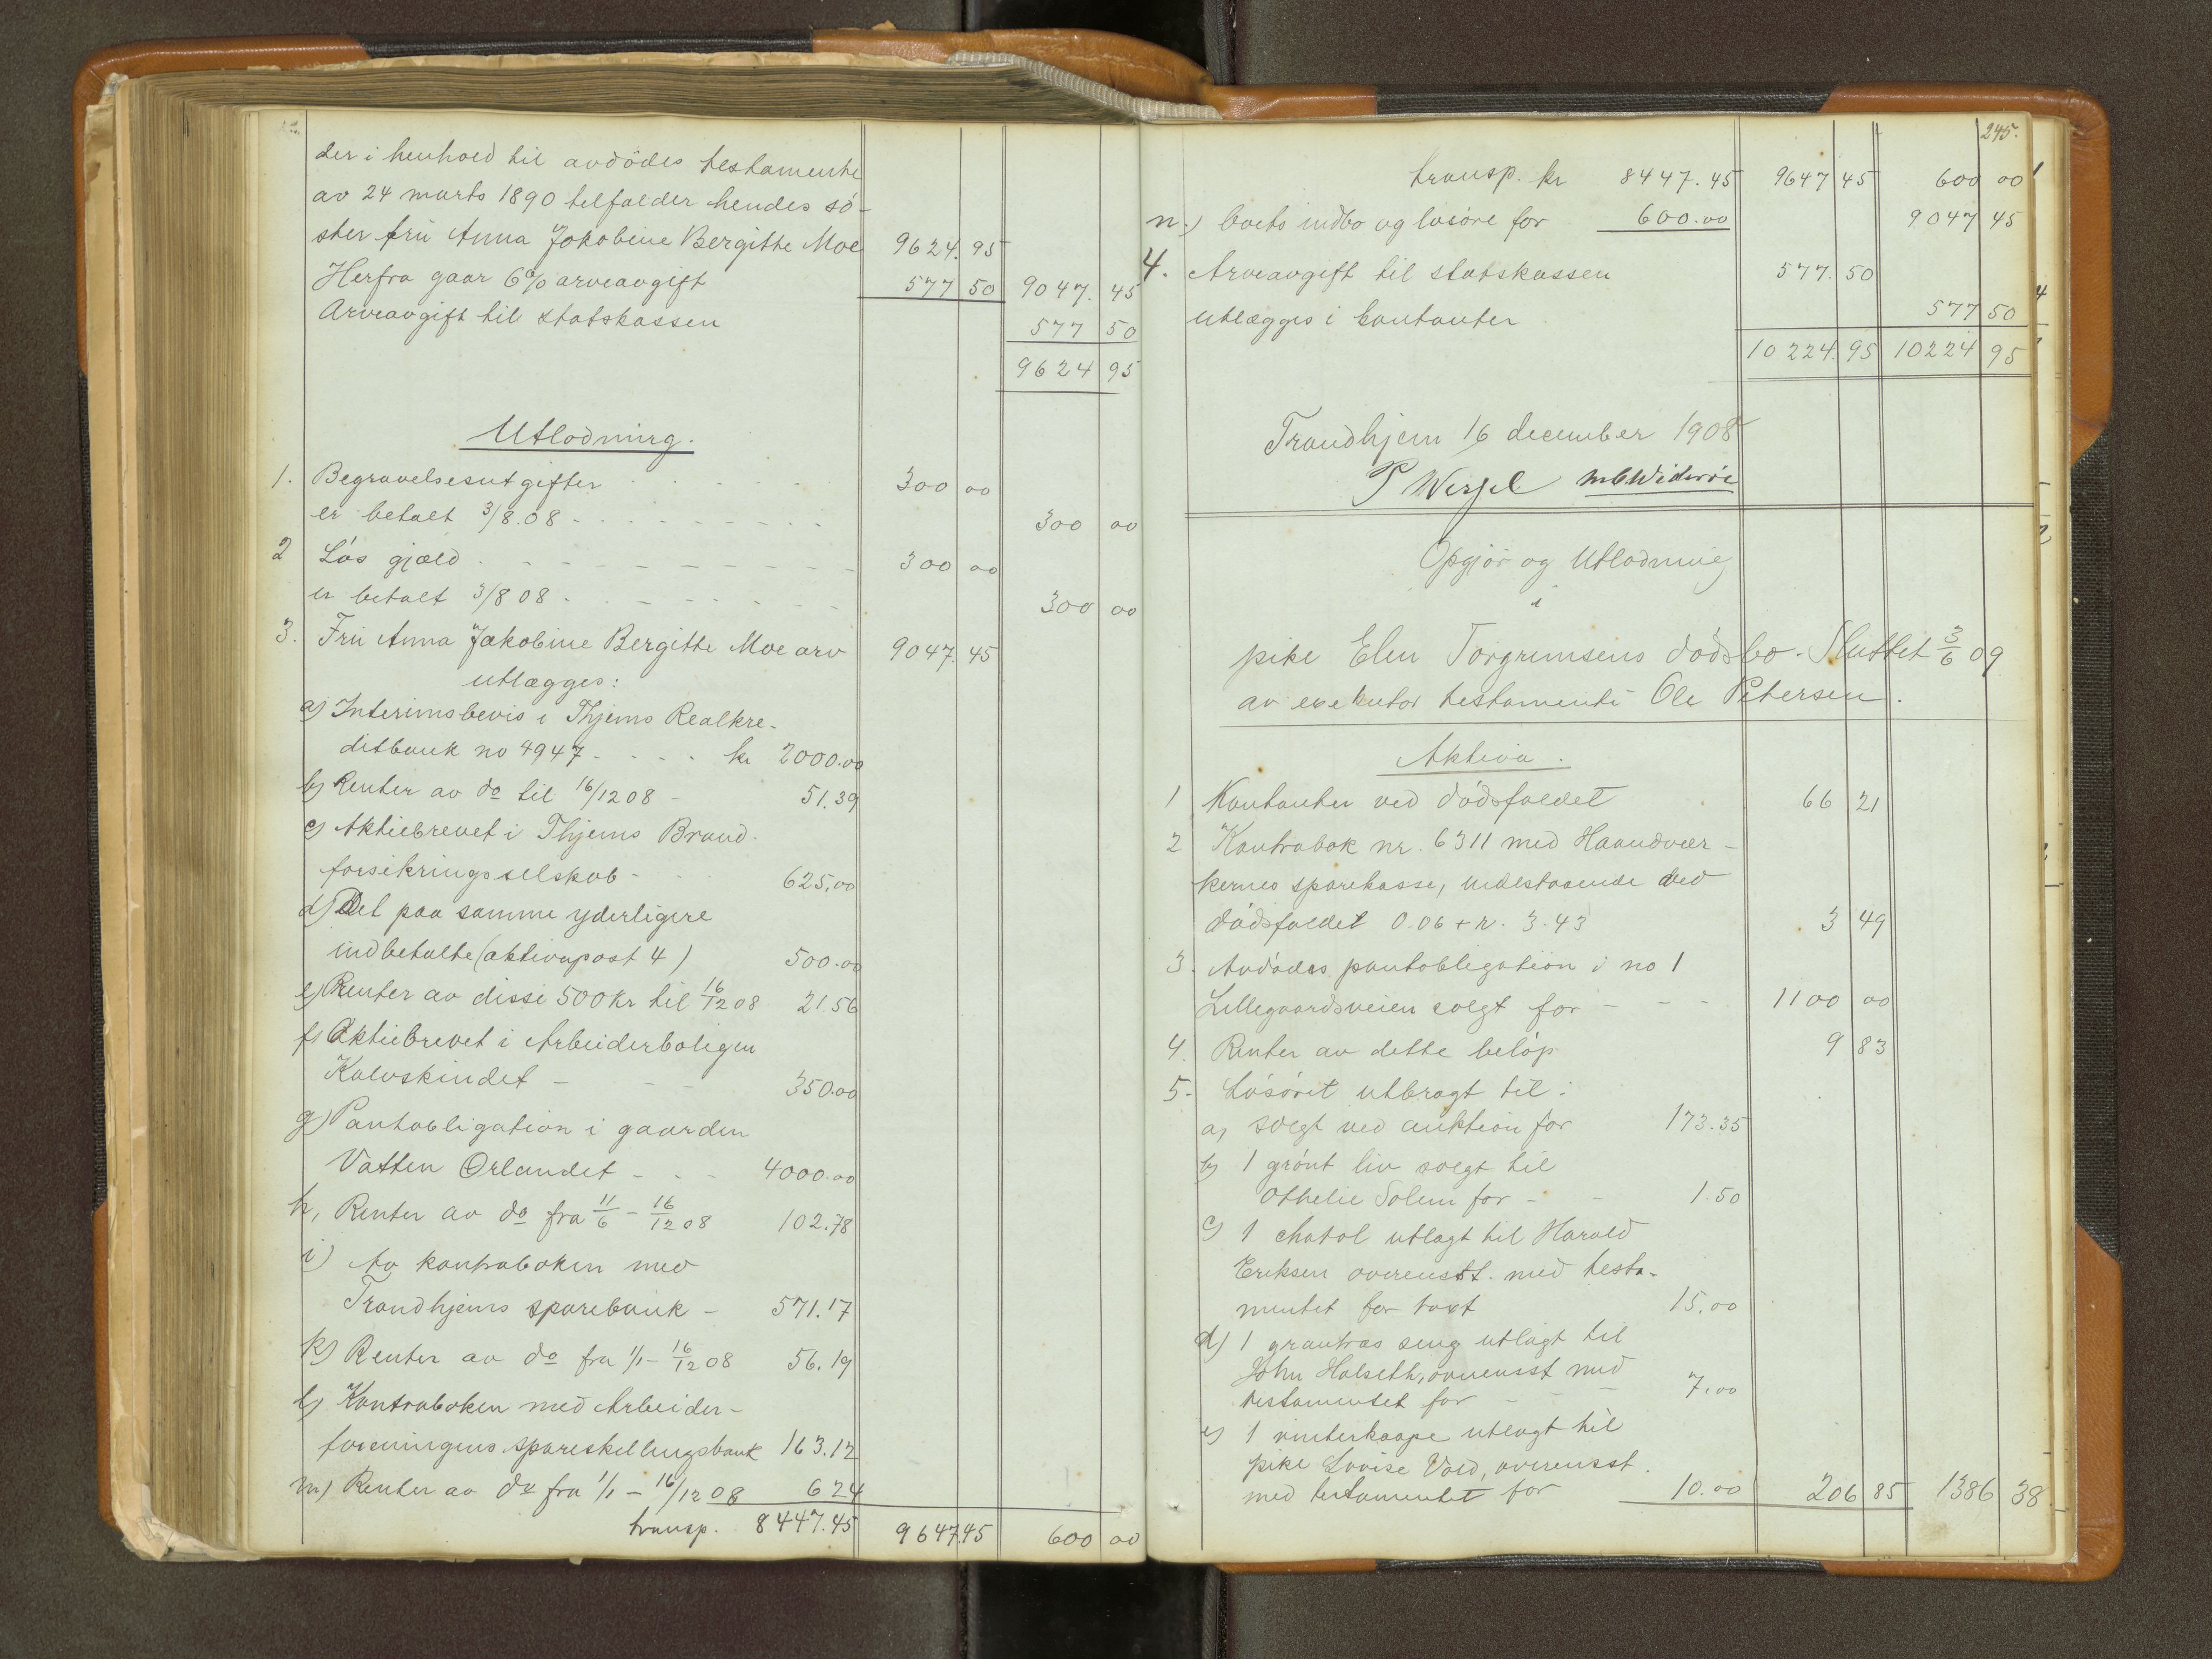 der i henhold til avdödes testamente
av 24 marts 1890 tilfalder hendes sö-
ster fru Anna Jakobine Bergitte Moe 9624.95
Herfra gaar 6% arveavgift 577 50 9047.45
Arveavgift til statskassen 577 50
9624 95
Utlodning.
1. Begravelsesutgifter 300 00
er betalt 3/8.08 300 00
2 Lös gjæld 300 00
er betalt 3/8 08 300 00
3. Fru Anna Jakobine Bergitte Moe arv 9047.45
utlægges:
a) Interimsbevis i Thjems Realkre-
ditbank no 4947 kr 2000.00
b) Renter av do til 16/12 08 - 51.39
c) Aktiebrevet i Thjems Brand-
forsikringsselskab - 625.00
d) Det paa samme yderligere
indbetalte (aktivapost 4) 500.00
e) Renter av disse 500 kr til 16/12 08 21.56
f) Aktiebrevet i Arbeiderboligen
Kalvskindet - 350.00
g) Pantobligation i gaarden
Vatten Ørlandet - 4000.00
h, Renter av do fra 11/6 - 16/12 08 102.78
i) Av kontraboken med
Trondhjems sparebank - 571.17
k) Renter av do fra 1/1 - 16/12 08 56.19
l) Kontraboken med Arbeider-
foreningens spareskillingsbank 163.12
m) Renter av do fra 1/1 - 16/12 08 6 24
transp. 8447.45 9647.45 600 00
245.
transp. kr 8447.45 9647 45 600 00
n.) boets indbo og lösöre for 600.00 9047 45
4. Arveavgift til statskassen 577.50
utlægges i kontanter 577 50
10224.95 10224 95
Trondhjem 16 december 1908
P Wessel
Opgjör og Utlodning
i
pike Elen Torgrimsens dödsbo. Sluttet 3/6 09
av exekutor testamenti Ole Petersen.
Aktiva.
1 Kontanter ved dödsfaldet 66 21
2 Kontrabok nr. 6311 med Haandvær-
kernes sparekasse, indestaaende ved
dödsfaldet 0.06 + r. 3.43 3 49
3. Avdödes pantobligation i no 1
Lillegaardsveien solgt for - 1100 00
4. Renter av dette belöp 9 83
5. Lösöret utbragt til:
a, solgt ved auktion for 173.35
b) 1 grönt liv solgt til
Othelie Solem for - 1.50
c) 1 chatol utlagt til Harald
Eriksen overensst. med testa-
mentet for taxt 15.00
d) 1 grantræs seng utlagt til
John Halseth, overensst med
testamentet for - 7.00
e) 1 vinterkaape utlagt til
pike Lovise Vold, overensst.
med testamentet for 10.00 206 85 1386 38